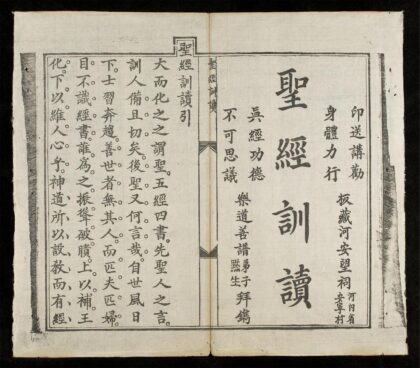 印送講勸
身體力行
板藏河安望祠
河內省
安寧村
聖經訓讀
吳經功德
不可思議
樂道善譜弟子
拜鐫
聖經訓讀
聖經訓讀引
大而化之之謂聖五經四書先聖人之言
訓人備且切矣後聖又何言哉自世風日
下士習奔趨善世者無其人而匹夫匹婦
目不識經書誰為之振聾破聵上以補王
化下以維人心乎神道所以設教而有經